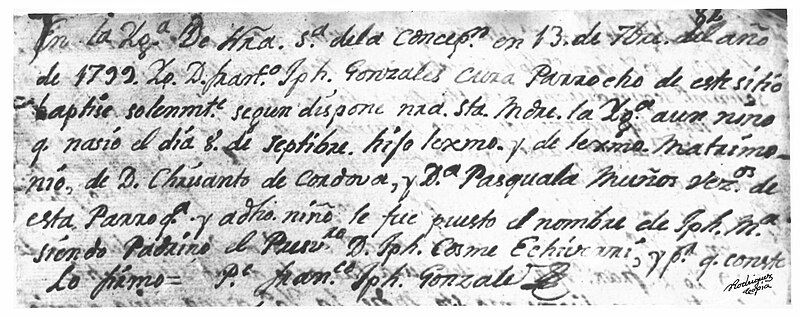 82
En la Yg.ª De Ntra. S.ª dela Concep.n en 13. de 7bre. del año
de 1799. Yo D. Fran.co Iph. Gonzales Cura Parrocho de este sitio
baptise solenmte. segun dispone nra. sta. Mdre. la Yg.ª a un niño
q. nasió el día 8. de septibre. hijo lexmo. y de lexmo. Matrimo-
nio, de D. Chrisanto de Cordova, y D.ª Pasquala Muños vez.os de
esta Parroq.ª y adho. niño le fue puesto el nombre de Iph. M.ª
siendo Padrino el Presv.ro D. Iph. Cosme Echiverri, y p.ª q. conste
Lo firmo= P.e Fran.co Iph. Gonzales
Rodriguez copia